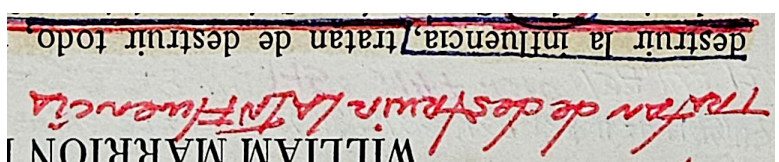 WILLIAM MARRION
Tratan de destruir LA INFluencia
destruir la influencia, tratan de destruir todo,